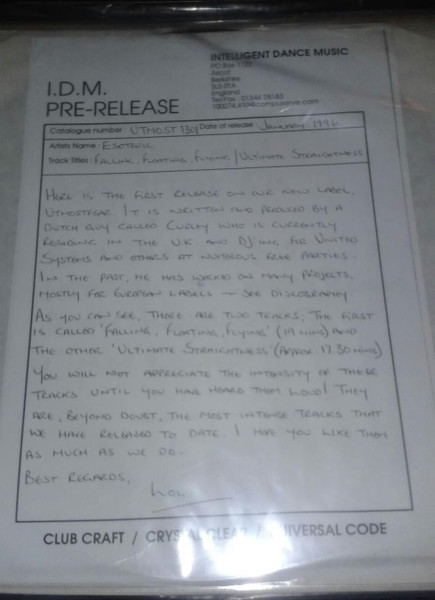 INTELLIGENT DANCE MUSIC
PO Box
Ascot
Berkshire
England
Tel/Fax: 01344 28183
I.D.M.
PRE-RELEASE
Catalogue number: UTMOST 130 Date of release: January 1996
Artists Name: ESOTERIC
Track Titles: FALLING, FLOATING, FLYING / ULTIMATE STRAIGHTNESS
HERE IS THE FIRST RELEASE ON OUR NEW LABEL,
IT IS WRITTEN AND PRODUCED BY A
DUTCH GUY CALLED CURLEY WHO IS CURRENTLY
RESIDING IN THE U.K AND DJ'ING FOR UNITED
SYSTEMS AND OTHERS AT NUMEROUS FREE PARTIES.
IN THE PAST, HE HAS WORKED ON MANY PROJECTS,
MOSTLY FOR EUROPEAN LABELS — SEE DISCOGRAPHY
AS YOU CAN SEE, THERE ARE TWO TRACKS; THE FIRST
IS CALLED 'FALLING, FLOATING, FLYING' (19 MINS) AND
THE OTHER 'ULTIMATE STRAIGHTNESS' (APPROX. 17.30 MINS)
YOU WILL NOT APPRECIATE THE INTENSITY OF THESE
TRACKS UNTIL YOU HAVE HEARD THEM LOUD! THEY
ARE, BEYOND DOUBT, THE MOST INTENSE TRACKS THAT
WE HAVE RELEASED TO DATE. I HOPE YOU LIKE THEM
AS MUCH AS WE DO.
BEST REGARDS,
CLUB CRAFT / CRYSTAL CLEAR / UNIVERSAL CODE